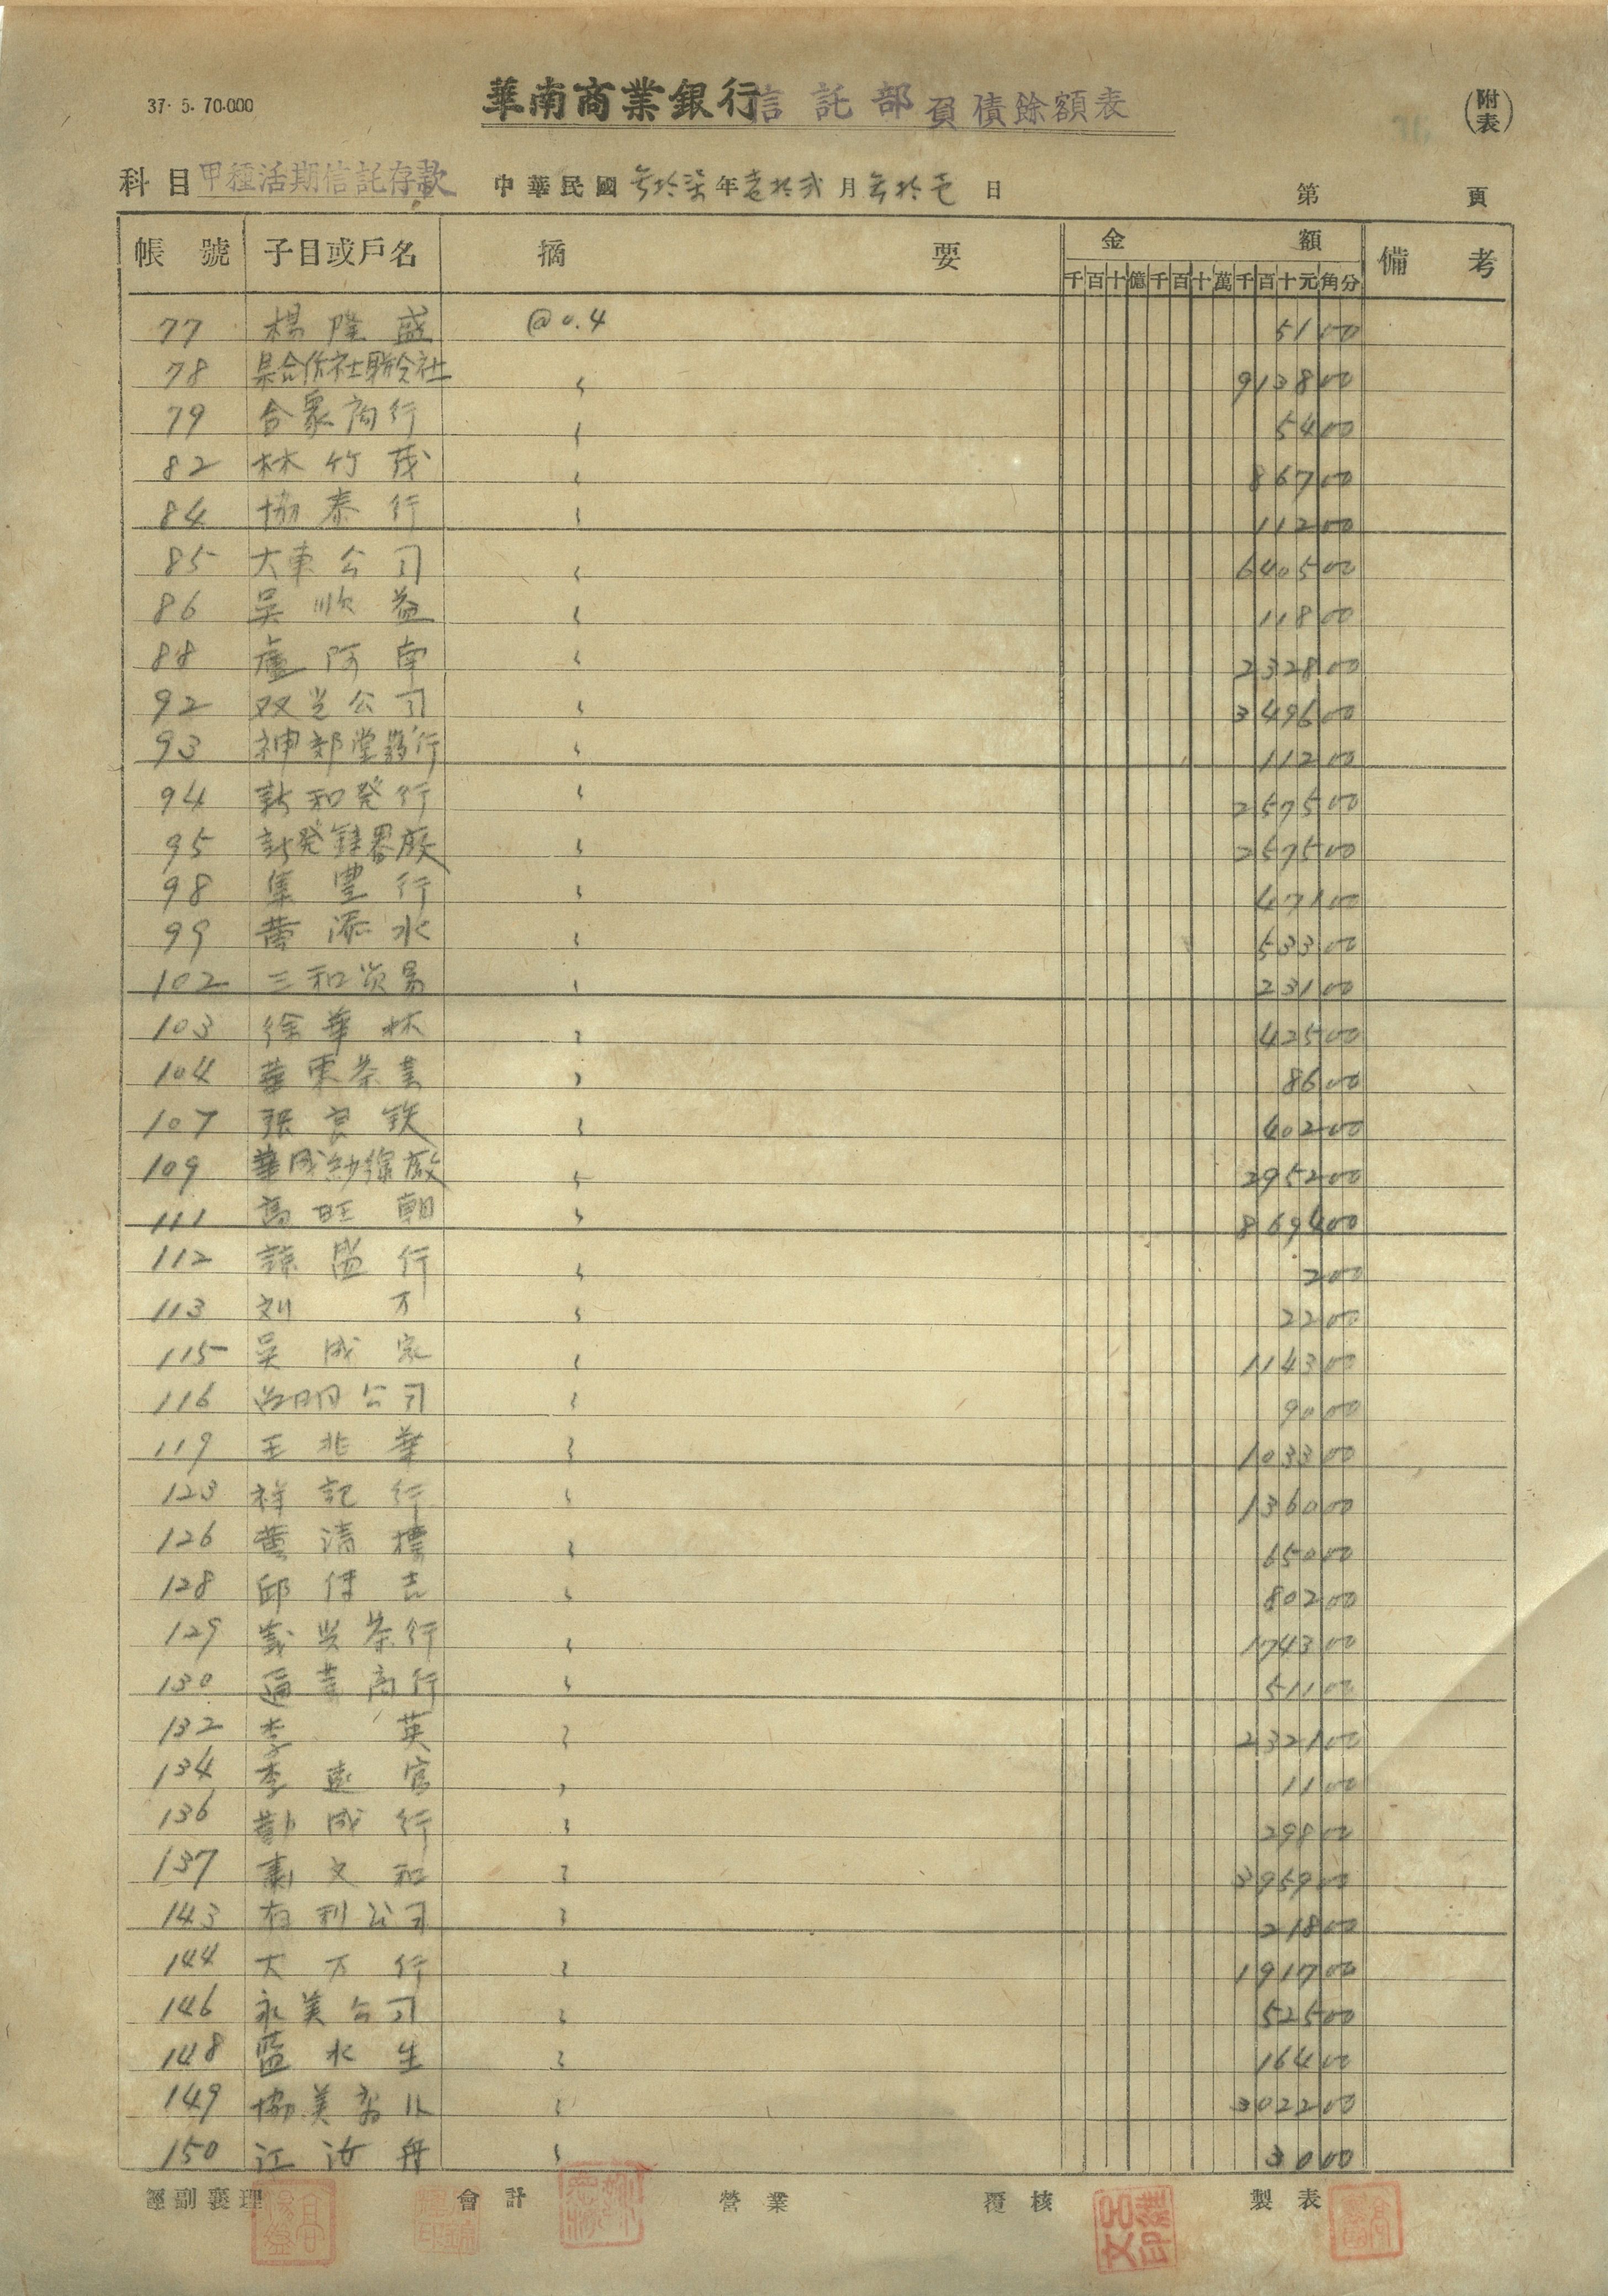 37. 5. 70.000
華南商業銀行信託部負債餘額表
(附表)
科目 甲種活期信託存款 中華民國 叁拾柒 年 壹拾弍 月 叁拾壱 日 第 頁
帳號 子目或戶名 摘要 金額 備考
千百十億千百十萬千百十元角分
77 楊隆盛 @0.4 51 00
78 合作社聯合社 〃 9138 00
79 合眾商行 〃 54 00
82 林竹茂 〃 867 00
84 協泰行 〃 112 00
85 大東公司 〃 6405 00
86 吳順益 〃 118 00
88 盧阿南 〃 2328 00
92 双兴公司 〃 3496 00
93 神郊堂 行 〃 112 00
94 新和発行 〃 2575 00
95 新発鉄器廠 〃 2575 00
98 集豐行 〃 471 00
99 黃添水 〃 533 00
102 三和貿易 〃 231 00
103 徐華林 〃 425 00
104 華東茶業 〃 86 00
107 張良鉄 〃 402 00
109 華成紗線廠 〃 2952 00
111 高旺朝 〃 8694 00
112 盛行 〃 2 00
113 刘万 〃 22 00
115 吳成家 〃 1143 00
116 公司 〃 90 00
119 王兆華 〃 1033 00
123 祥記行 〃 1360 00
126 黃清標 〃 650 00
128 邱傳吉 〃 802 00
129 義兴茶行 〃 1743 00
130 商行 〃 511 00
132 李英 〃 2321 00
134 李 官 〃 11 00
136 勤成行 〃 298 00
137 蕭文和 〃 3959 00
143 有利公司 〃 218 00
144 大万行 〃 1917 00
146 永美公司 〃 525 00
148 藍水生 〃 164 00
149 協美 〃 3022 00
150 江汝舟 〃 30 00
經副襄理 會計 營業 覆核 製表